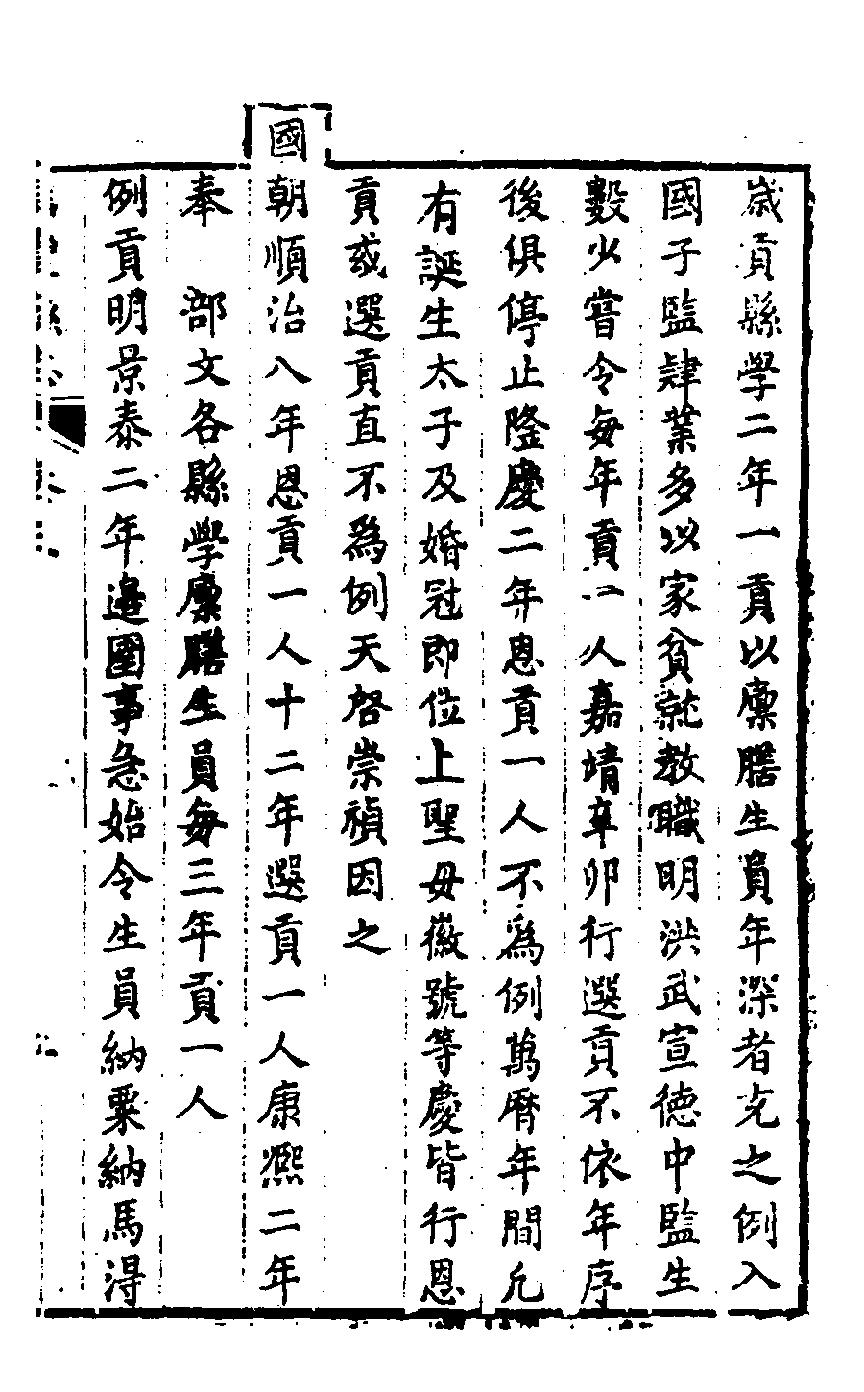 歲貢縣學二年一貢以廩膳生員年深者充之例入
國子監肄業多以家貧就教職明洪武宣德中監生
數少嘗令每年貢二人嘉靖辛卯行選貢不依年序
後俱停止隆慶二年恩貢一人不爲例萬曆年間凡
有誕生太子及婚冠即位上聖母徽號等慶皆行恩
貢或選貢直不爲例天啓崇禎因之
國朝順治八年恩貢一人十二年選貢一人康熙二年
奉 部文各縣學廩膳生員每三年貢一人
例貢明景泰二年邉圉事急始令生員納粟納馬淂